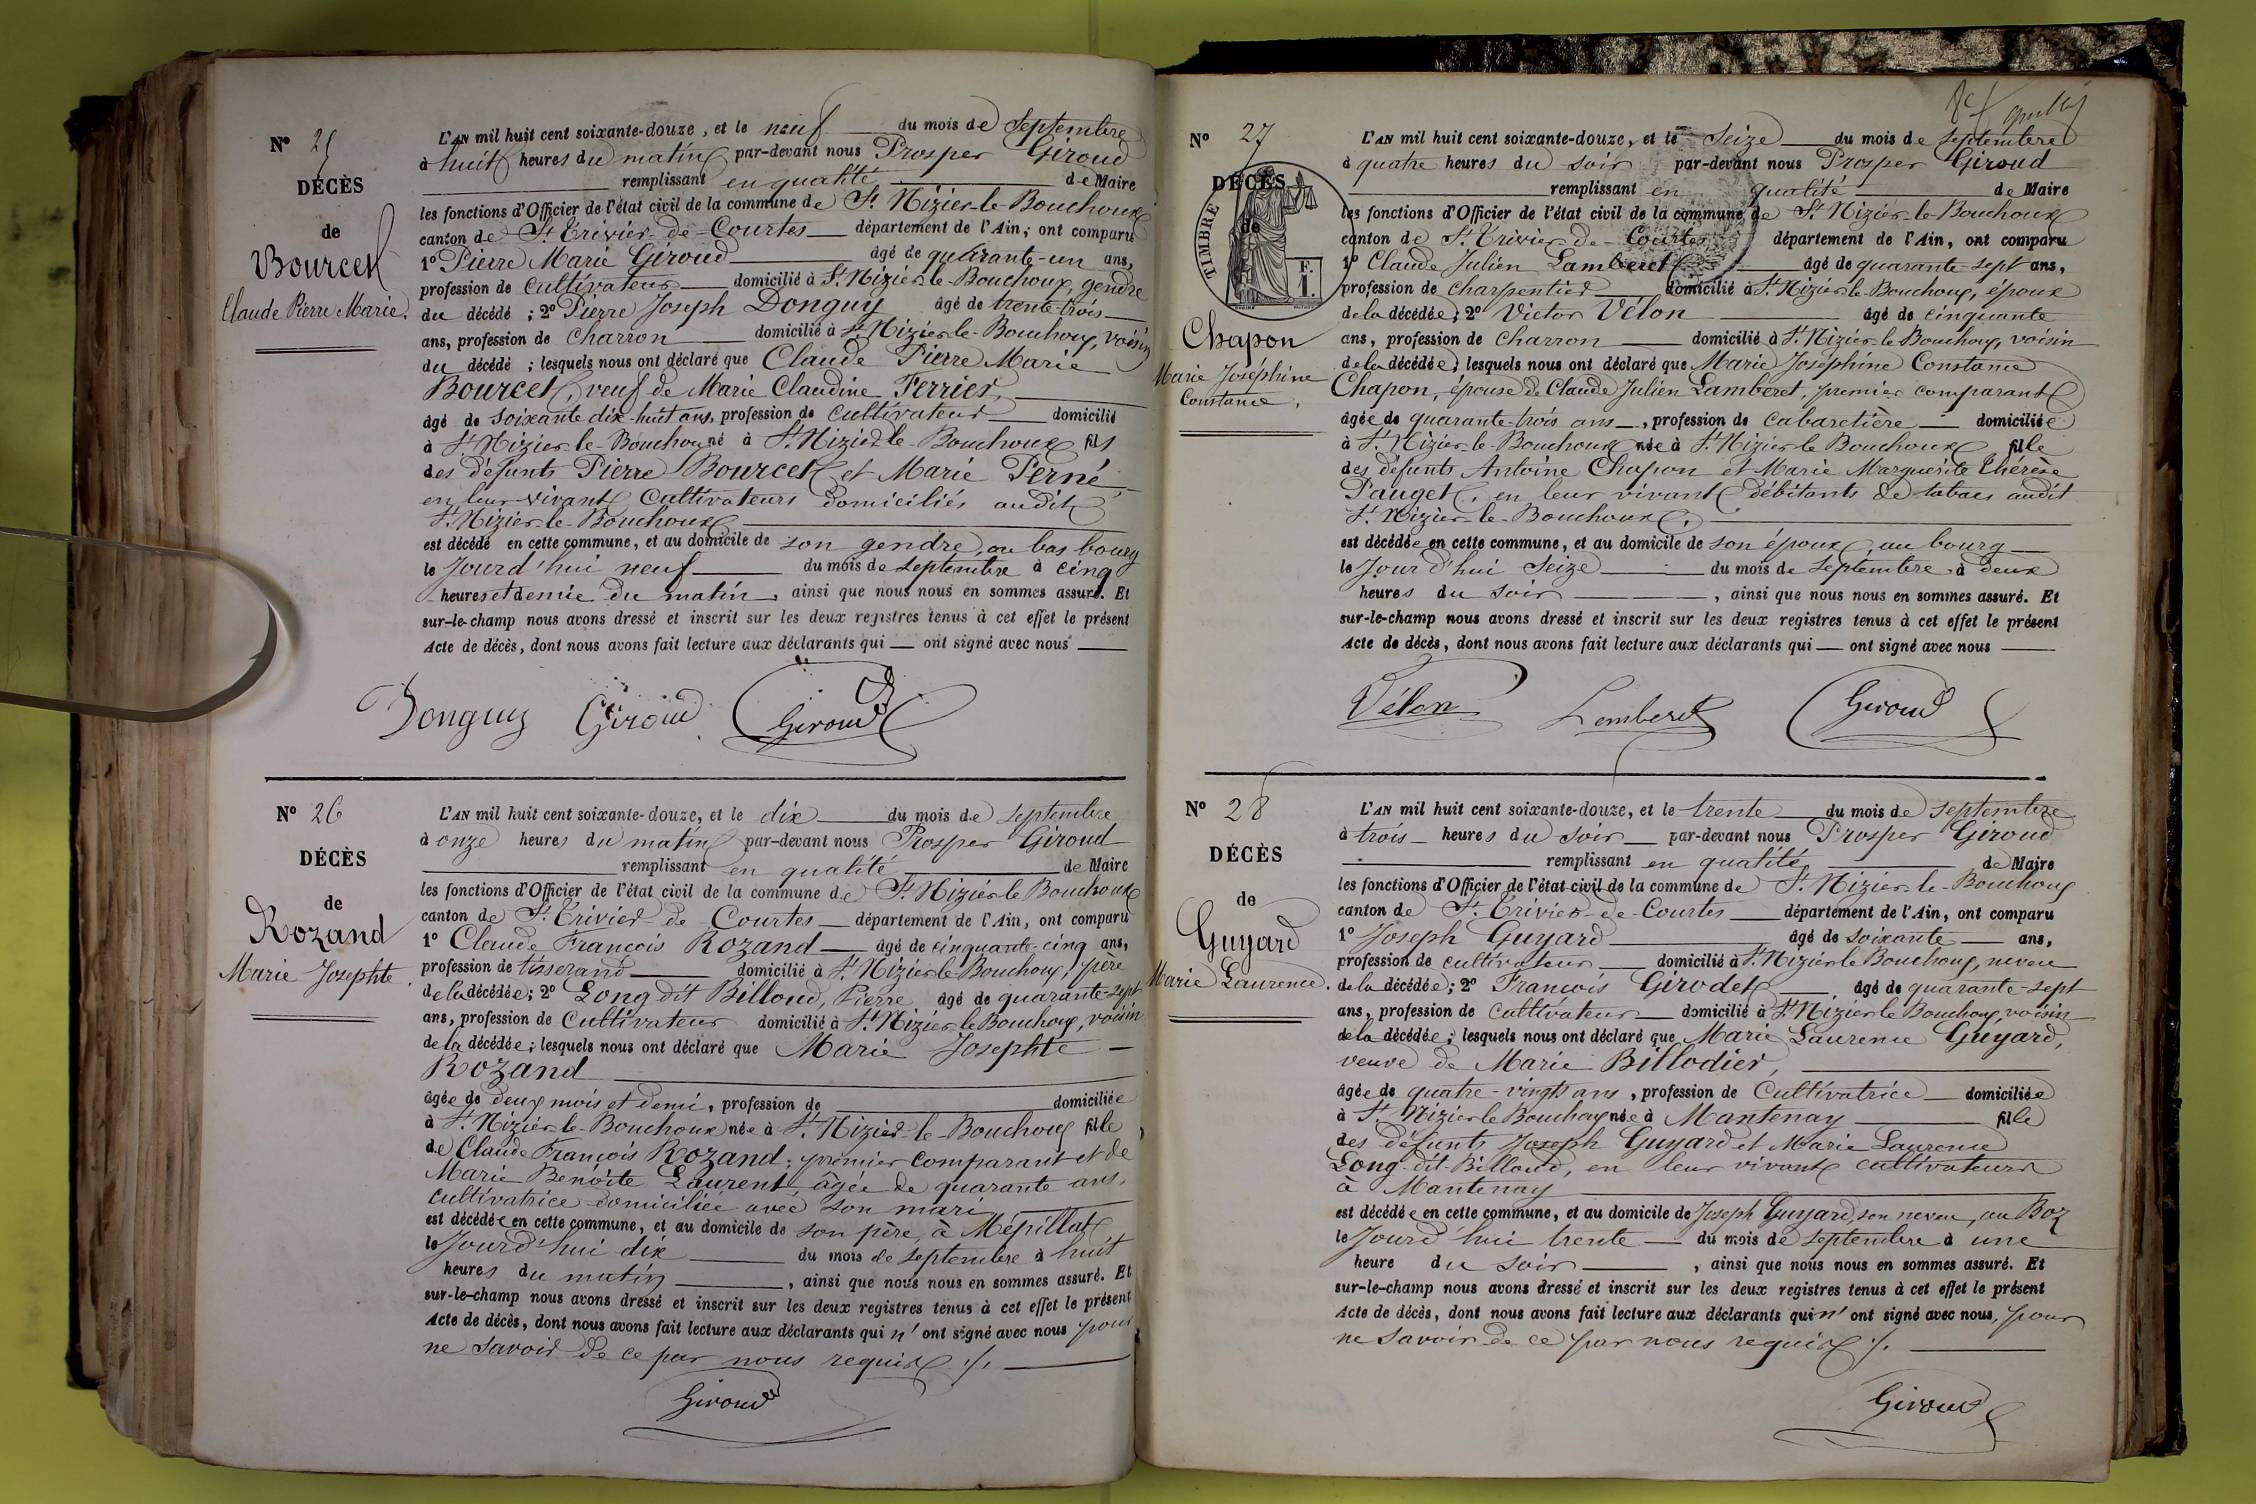 N° 25
DÉCÈS
de
Bourcet
Claude Pierre Marie.
L'AN mil huit cent soixante-douze, et le neuf du mois de Septembre
à huit heures du matin par-devant nous Prosper Giroud
remplissant en qualité de Maire
les fonctions d'Officier de l'état civil de la commune de St Nizier-le-Bouchoux
canton de St Trivier-de-Courtes département de l'Ain; ont comparu
1° Pierre Marie Giroud âgé de quarante-un ans,
profession de cultivateur domicilié à St Nizier-le-Bouchoux, gendre
du décédé ; 2° Pierre Joseph Donguy âgé de trente-trois
ans, profession de charron domicilié à St Nizier-le-Bouchoux, voisin
du décédé ; lesquels nous ont déclaré que Claude Pierre Marie
Bourcet, veuf de Marie Claudine Ferrier,
âgé de soixante dix-huit ans, profession de cultivateur domicilié
à St Nizier-le-Bouchoux né à St Nizier-le-Bouchoux fils
des défunts Pierre Bourcet et Marie Perné,
en leur vivant Cultivateurs domiciliés audit
St Nizier-le-Bouchoux
est décédé en cette commune, et au domicile de son gendre, au bas bourg
le Jourd'hui neuf du mois de Septembre à cinq
heures et demie du matin, ainsi que nous nous en sommes assuré. Et
sur-le-champ nous avons dressé et inscrit sur les deux registres tenus à cet effet le présent
Acte de décès, dont nous avons fait lecture aux déclarants qui — ont signé avec nous
Donguy Giroud Giroud
N° 26
DÉCÈS
de
Rozand
Marie Josephte.
L'AN mil huit cent soixante-douze, et le dix du mois de Septembre
à onze heures du matin par-devant nous Prosper Giroud
remplissant en qualité de Maire
les fonctions d'Officier de l'état civil de la commune de St Nizier-le-Bouchoux
canton de St Trivier-de-Courtes département de l'Ain, ont comparu
1° Claude François Rozand âgé de cinquante-cinq ans,
profession de tisserand domicilié à St Nizier-le-Bouchoux, père
de la décédée; 2° Long dit Billoud, Pierre âgé de quarante-sept
ans, profession de Cultivateur domicilié à St Nizier-le-Bouchoux, voisin
de la décédée; lesquels nous ont déclaré que Marie Josephte
Rozand
âgée de deux mois et demi, profession de domiciliée
à St Nizier-le-Bouchoux née à St Nizier-le-Bouchoux fille
de Claude François Rozand, premier comparant et de
Marie Benoite Laurent âgée de quarante ans,
cultivatrice domiciliée avec son mari
est décédée en cette commune, et au domicile de son père, à Mépillat
le Jourd'hui dix du mois de Septembre à huit
heures du matin, ainsi que nous nous en sommes assuré. Et
sur-le-champ nous avons dressé et inscrit sur les deux registres tenus à cet effet le présent
Acte de décès, dont nous avons fait lecture aux déclarants qui n'ont signé avec nous pour
ne savoir de ce par nous requis ./.
Giroud
N° 27
DÉCÈS
de
TIMBRE
F.
1.
Chapon
Marie Joséphine
Constance.
L'AN mil huit cent soixante-douze, et le Seize du mois de Septembre
à quatre heures du soir par-devant nous Prosper Giroud
remplissant en qualité de Maire
les fonctions d'Officier de l'état civil de la commune de St Nizier-le-Bouchoux
canton de St Trivier-de-Courtes département de l'Ain, ont comparu
1° Claude Julien Lamberet âgé de quarante-sept ans,
profession de charpentier domicilié à St Nizier-le-Bouchoux, époux
de la décédée; 2° Victor Vélon âgé de cinquante
ans, profession de charron domicilié à St Nizier-le-Bouchoux, voisin
de la décédée; lesquels nous ont déclaré que Marie Joséphine Constance
Chapon, épouse de Claude Julien Lamberet, premier comparant
âgée de quarante-trois ans, profession de cabaretière domiciliée
à St Nizier-le-Bouchoux née à St Nizier-le-Bouchoux fille
des défunts Antoine Chapon et Marie Marguerite Thérèse
Pauget, en leur vivant débitants de tabacs audit
St Nizier-le-Bouchoux,
est décédée en cette commune, et au domicile de son époux, au bourg
le Jourd'hui Seize du mois de Septembre à deux
heures du soir, ainsi que nous nous en sommes assuré. Et
sur-le-champ nous avons dressé et inscrit sur les deux registres tenus à cet effet le présent
Acte de décès, dont nous avons fait lecture aux déclarants qui — ont signé avec nous
Vélon Lamberet Giroud
N° 28
DÉCÈS
de
Guyard
Marie Laurence.
L'AN mil huit cent soixante-douze, et le trente du mois de Septembre
à trois heures du soir par-devant nous Prosper Giroud
remplissant en qualité de Maire
les fonctions d'Officier de l'état civil de la commune de St Nizier-le-Bouchoux
canton de St Trivier-de-Courtes département de l'Ain, ont comparu
1° Joseph Guyard âgé de soixante ans,
profession de cultivateur domicilié à St Nizier-le-Bouchoux, neveu
de la décédée; 2° François Girodet âgé de quarante-sept
ans, profession de cultivateur domicilié à St Nizier-le-Bouchoux, voisin
de la décédée; lesquels nous ont déclaré que Marie Laurence Guyard,
veuve de Marie Billodier,
âgée de quatre-vingts ans, profession de Cultivatrice domiciliée
à St Nizier-le-Bouchoux née à Mantenay fille
des défunts Joseph Guyard et Marie Laurence
Long-dit-Billoud, en leur vivant cultivateurs
à Mantenay
est décédée en cette commune, et au domicile de Joseph Guyard, son neveu, au Boz
le Jourd'hui trente du mois de Septembre à une
heure du soir, ainsi que nous nous en sommes assuré. Et
sur-le-champ nous avons dressé et inscrit sur les deux registres tenus à cet effet le présent
Acte de décès, dont nous avons fait lecture aux déclarants qui n'ont signé avec nous, pour
ne savoir de ce par nous requis ./.
Giroud